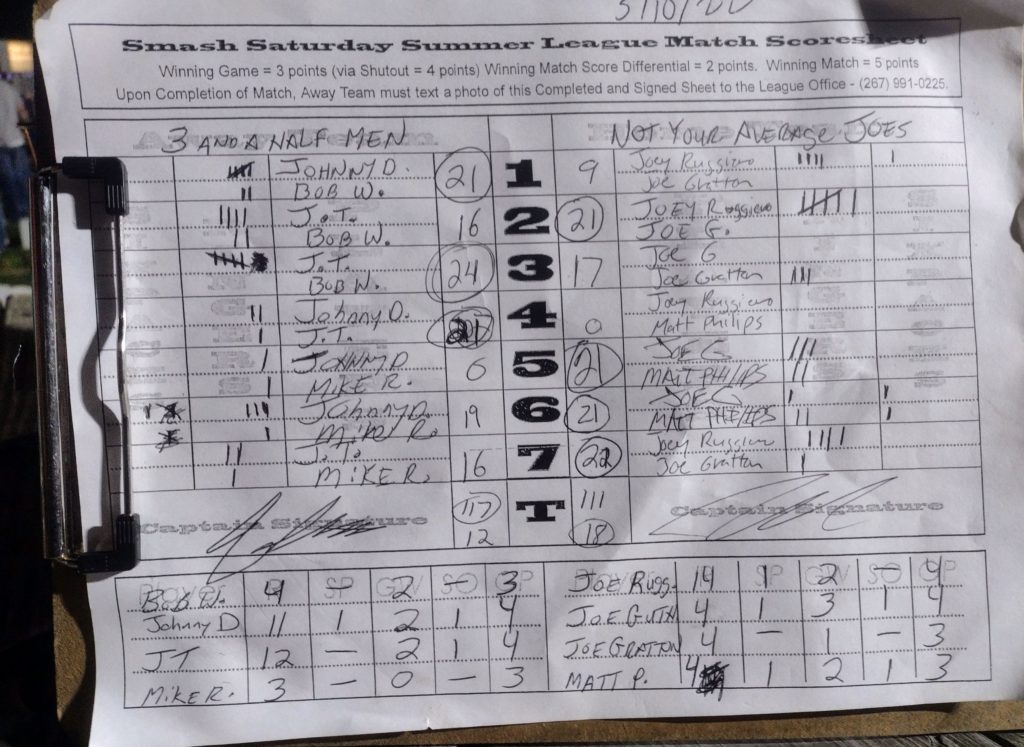 Smash Saturday Summer League Match Scoresheet
Winning Game = 3 points (via Shutout = 4 points) Winning Match Score Differential = 2 points. Winning Match = 5 points
Upon Completion of Match, Away Team must text a photo of this Completed and Signed Sheet to the League Office - (267) 991-0225.
3 AND A HALF MEN NOT YOUR AVERAGE JOES
JOHNNY D. 21 1 9 Joey Ruggiero
BOB W. Joe Gratton
J.T. 16 2 21 JOEY Ruggiero
BOB W. JOE G.
J.T. 24 3 17 JOE G
BOB W. Joe Gratton
Johnny D. 21 4 0 Joey Ruggiero
J.T. Matt Philips
JOHNNY D 6 5 21 JOE G
MIKE R. MATT PHILIPS
Johnny D. 19 6 21 JOE G
MIKE R. MATT PHILIPS
J.T. 16 7 22 Joey Ruggiero
MIKE R. Joe Gratton
117 T 111
Captain Signature Captain Signature
12 18
SP SO GP SP SO GP
BOB W. 4 2 - 3 JOE Rugg. 14 1 2 - 4
Johnny D 11 1 2 1 4 JOE GUTH 4 1 3 1 4
JT 12 - 2 1 4 JOE GRATTON 4 - 1 - 3
MIKE R. 3 - 0 - 3 MATT P. 4 1 2 1 3